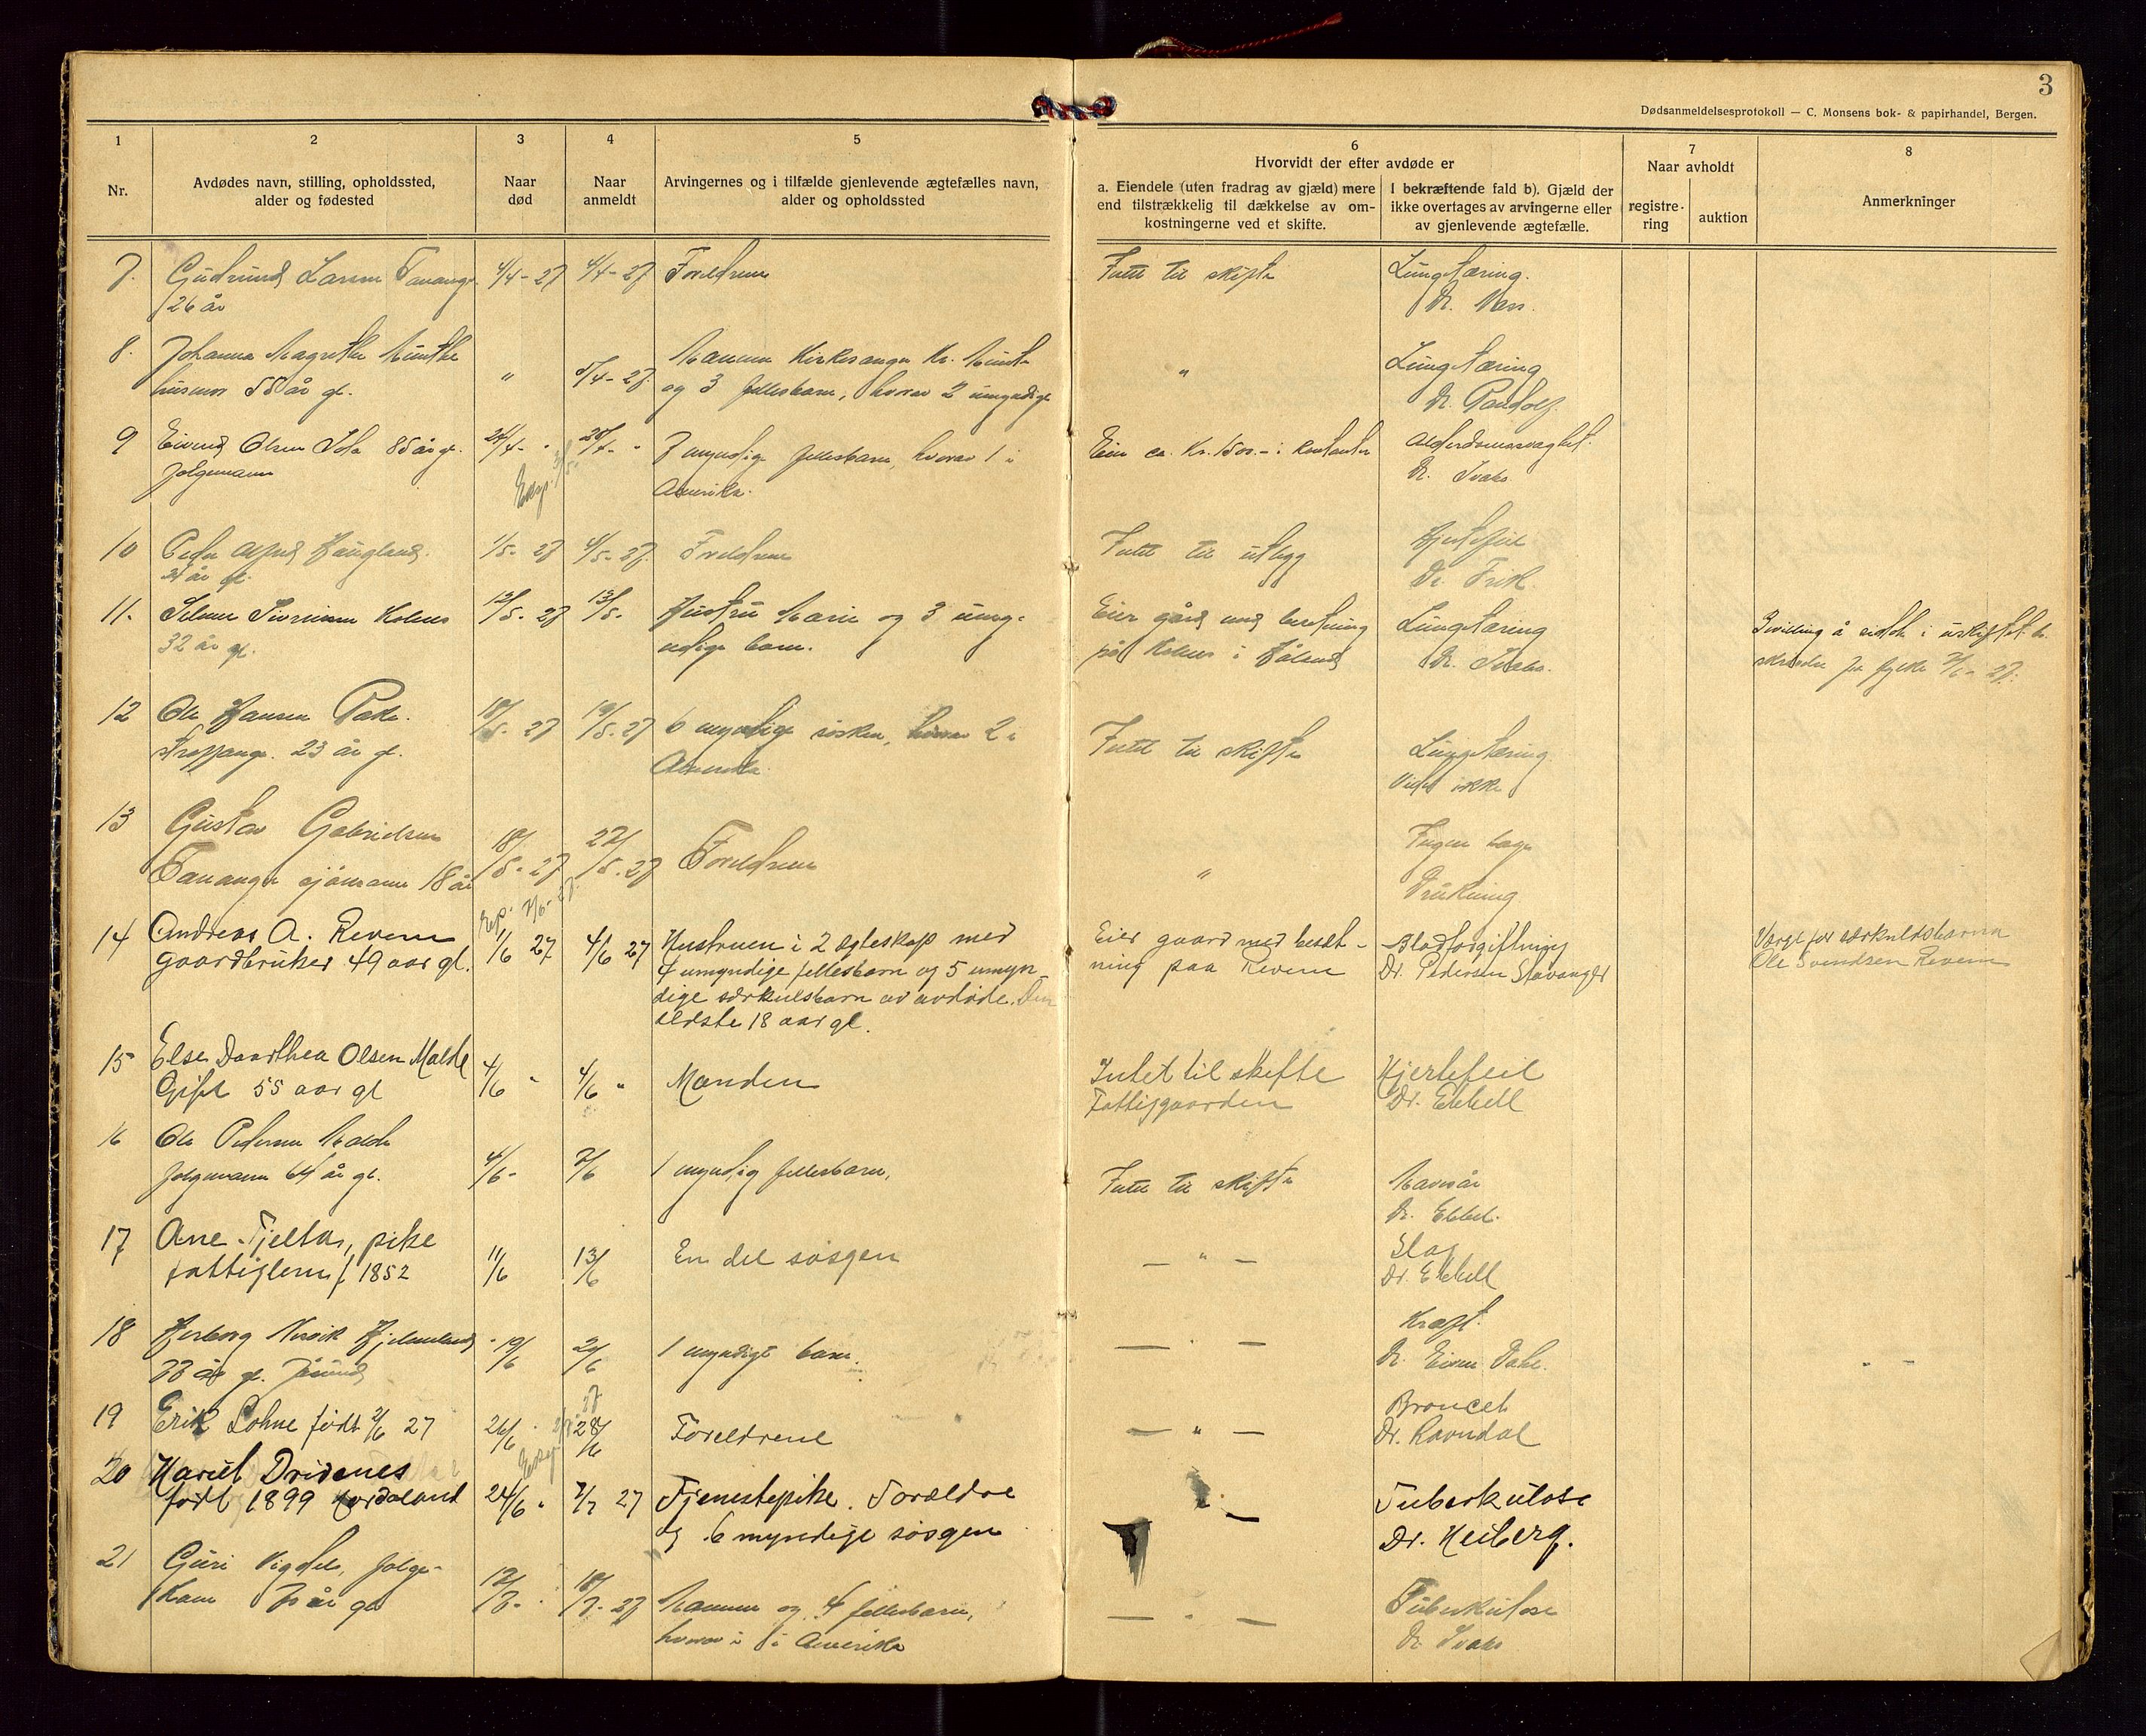 3
Dødsanmeldelsesprotokoll — C. Monsens bok- & papirhandel, Bergen.
1
2
3
4
5
6
7
8
Nr.
Avdødes navn, stilling, opholdssted,
alder og fødested
Naar
død
Naar
anmeldt
Arvingernes og i tilfælde gjenlevende ægtefælles navn,
alder og opholdssted
Hvorvidt der efter avdøde er
a. Eiendele (uten fradrag av gjæld) mere
end tilstrækkelig til dækkelse av om-
kostningerne ved et skifte.
I bekræftende fald b). Gjæld der
ikke overtages av arvingerne eller
av gjenlevende ægtefælle.
Naar avholdt
registre-
ring
auktion
Anmerkninger
7. Gudrund Larsen Tananger 4/4-27 4/4-27 Foreldrene Intet til skifte Lungetæring.
26 år Dr.
8. Johanna Magrethe Munthe " 5/4-27 Mannen Kirkesanger Kr. Munthe " Lungetæring
husmor 55 år gl. og 3 fellesbarn, hvorav 2 umyndige Dr.
9 Eivind Olsen 85 år gl. 24/4 - " 7 myndige fellesbarn, hvorav 1 i Eier ca. Kr. 1500.- i kontanter Alderdomssvaghet.
Folgemann Amerika. Dr.
10 Peder Alfred Haugland. 1/5-27 4/5-27 Foreldrene Intet til utlegg Hjertefeil
år gl. Dr.
11. Kolnes 12/5-27 13/5- Hustru Marie og 3 umyn-
32 år gl. dige barn. Eier gård med besetning Lungetæring
på Kolnes i Håland Dr.
Bevilling å sidde i uskiftet bo
12 Ole Hansen 18/5-27 19/5-27 6 myndige søsken, hvorav 2 i Intet til skifte Lungetæring
23 år gl. Amerika. ikke
13 Gustav Gabrielsen 18/5-27 22/5-27 Foreldrene " Ingen læge
Tananger sjömann 18 år Drukning
14 Andreas A. Revem 1/6 27 4/6 27 Hustruen i 2 ægteskap med Eier gaard med besæt- Blodforgiftning Værge for særkuldsbarna
gaardbruker 49 aar gl. 4 umyndige fellesbarn og 5 umyn- ning paa Revem Dr. Pedersen Stavanger Ole Svendsen Revem
dige særkulsbarn av avdøde. Den
eldste 18 aar gl.
15 Else Daarthea Olsen Malde 4/6 " 4/6 " Manden Intet til skifte Hjertefeil
Gift 55 aar gl Fattiggaarden Dr. Ebbell
16 Ole Pedersen Malde 4/6- 7/6 1 myndig fellesbarn, Intet til skifte Mavesår
Folgemann 64 år gl. Dr. Ebbel.
17 Ane Tjeltar, pike 11/6 13/6 En del søsgen — " — Slag
fattiglem f. 1852 Dr. Ebbell
18 Hjelmeland 19/6 1 myndigt barn. — " — Kræft.
år gl. Dr.
19 Erik Sohne født 2/6 27 26/6 " 28/6 Foreldrene — " — Broncet
Dr. Ravndal
20 Dridenes
født 1899 24/6 " 2/7 27 Tjenestepike. Forældre — Tuberkulose
og 6 myndige søsgen Dr. Heiberg.
21 Guri Vigdel, folge- 12/7- " 18/7-27 Mannen og 4 fellesbarn, — " — Tuberkulose
kone år gl hvorav i Amerika Dr.